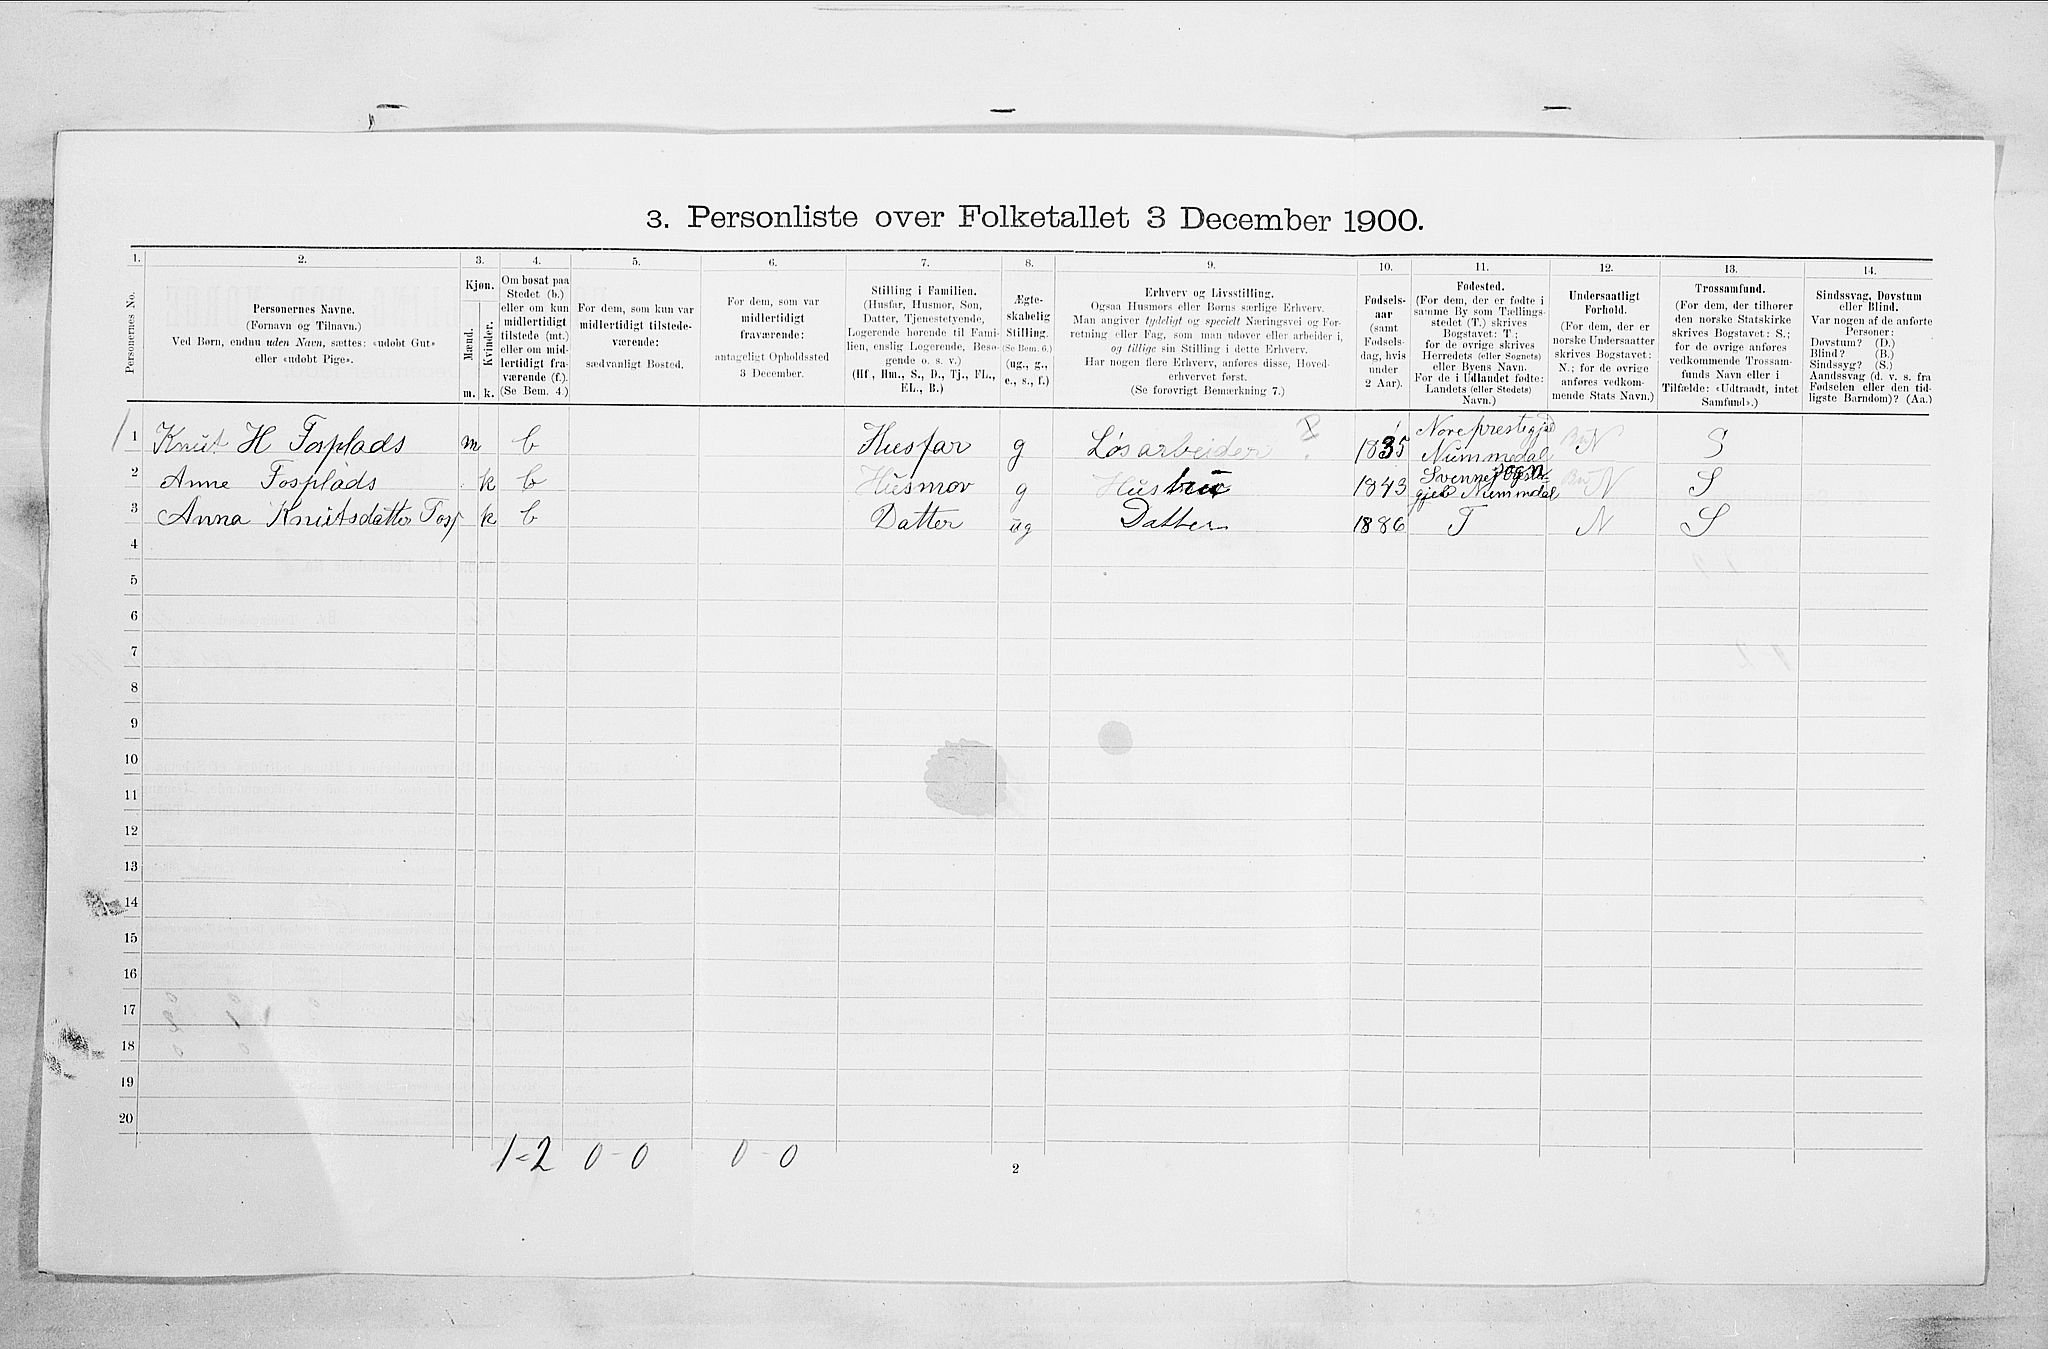 3. Personliste over Folketallet 3 December 1900.
1. 2. 3. 4. 5. 6. 7. 8. 9. 10. 11. 12. 13. 14.
Personernes No.
Personernes Navne.
(Fornavn og Tilnavn.)
Ved Børn, endnu uden Navn, sættes: «udøbt Gut»
eller «udøbt Pige».
Kjøn.
Mænd.
Kvinder.
m. k.
Om bosat paa
Stedet (b.)
eller om kun
midlertidigt
tilstede (mt.)
eller om mid-
lertidigt fra-
værende (f.).
(Se Bem. 4.)
For dem, som kun var
midlertidigt tilstede-
værende:
sædvanligt Bosted.
For dem, som var
midlertidigt
fraværende:
antageligt Opholdssted
3 December.
Stilling i Familien.
(Husfar, Husmor, Søn,
Datter, Tjenestetyende,
Logerende hørende til Fami-
lien, enslig Logerende, Besø-
gende o. s. v.)
(Hf., Hm., S., D., Tj., FL.,
EL., B.)
Ægte-
skabelig
Stilling.
(Se Bem. 6.)
(ug., g.,
e., s., f.)
Erhverv og Livsstilling.
Ogsaa Husmors eller Børns særlige Erhverv.
Man angiver tydeligt og specielt Næringsvei og For-
retning eller Fag, som man udøver eller arbeider i,
og tillige sin Stilling i dette Erhverv.
Har nogen flere Erhverv, anføres disse, Hoved-
erhvervet først.
(Se forøvrigt Bemærkning 7.)
Fødsels-
aar
(samt
Fødsels-
dag, hvis
under
2 Aar).
Fødested.
(For dem, der er fødte i
samme By som Tællings-
stedet (T.) skrives
Bogstavet: T.;
for de øvrige skrives
Herredets (eller Sognets)
eller Byens Navn.
For de i Udlandet fødte:
Landets (eller Stedets)
Navn.)
Undersaatligt
Forhold.
(For dem, der er
norske Undersaatter
skrives Bogstavet:
N.; for de øvrige
anføres vedkom-
mende Stats Navn.)
Trossamfund.
(For dem, der tilhører
den norske Statskirke
skrives Bogstavet: S.;
for de øvrige anføres
vedkommende Trossam-
funds Navn eller i
Tilfælde: «Udtraadt, intet
Samfund».)
Sindssvag, Døvstum
eller Blind.
Var nogen af de anførte
Personer:
Døvstum? (D.)
Blind? (B.)
Sindssyg? (S.)
Aandssvag (d. v. s. fra
Fødselen eller den tid-
ligste Barndom)? (Aa.)
1 Knut H Fosplads m b Husfar g Løsarbeider ? 1835 Nore prestegjeld Nummedal N S
2 Anne Fosplads k b Husmor g Hustru 1843 Svenne sogn Nummdal N S
3 Anna Knutsdatter Fosp k b Datter ug Datter 1886 T N S
4
5
6
7
8
9
10
11
12
13
14
15
16
17
18
19
20
1-2 0-0 0-0
2